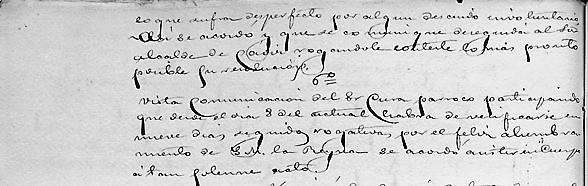 co que sufra desperfecto por algun descuido involuntario
Asi se acordó y que se comunique de seguida al Sr
alcalde de Cadiz rogandole conteste lo mas pronto
posible su resolucion.
6º
Vista Comunicacion del Sr Cura parroco participando
que desde el dia 8 del actual habra de verificarse en
nueve dias seguidos rogativas por el feliz alumbra
miento de S.M. la Reyna se acordó asistir en Cuerpo
á tan solemne acto.